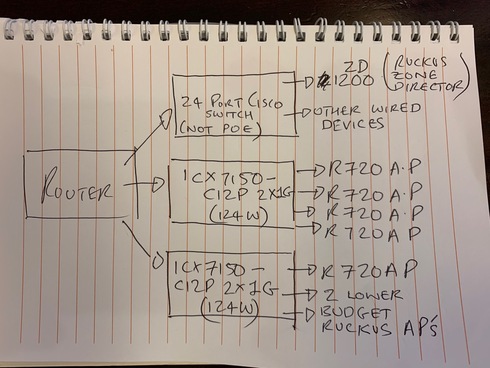 ROUTER
24 PORT CISCO
SWITCH
(NOT POE)
ZD
1200
(RUCKUS
ZONE
DIRECTOR)
OTHER WIRED
DEVICES
ICX7150-
C12P 2X1G
(124W)
R720 A.P
R720 A.P
R720 A.P
R720 A P
ICX7150-
C12P 2X1G
(124W)
R720 AP
2 LOWER
BUDGET
RUCKUS AP's